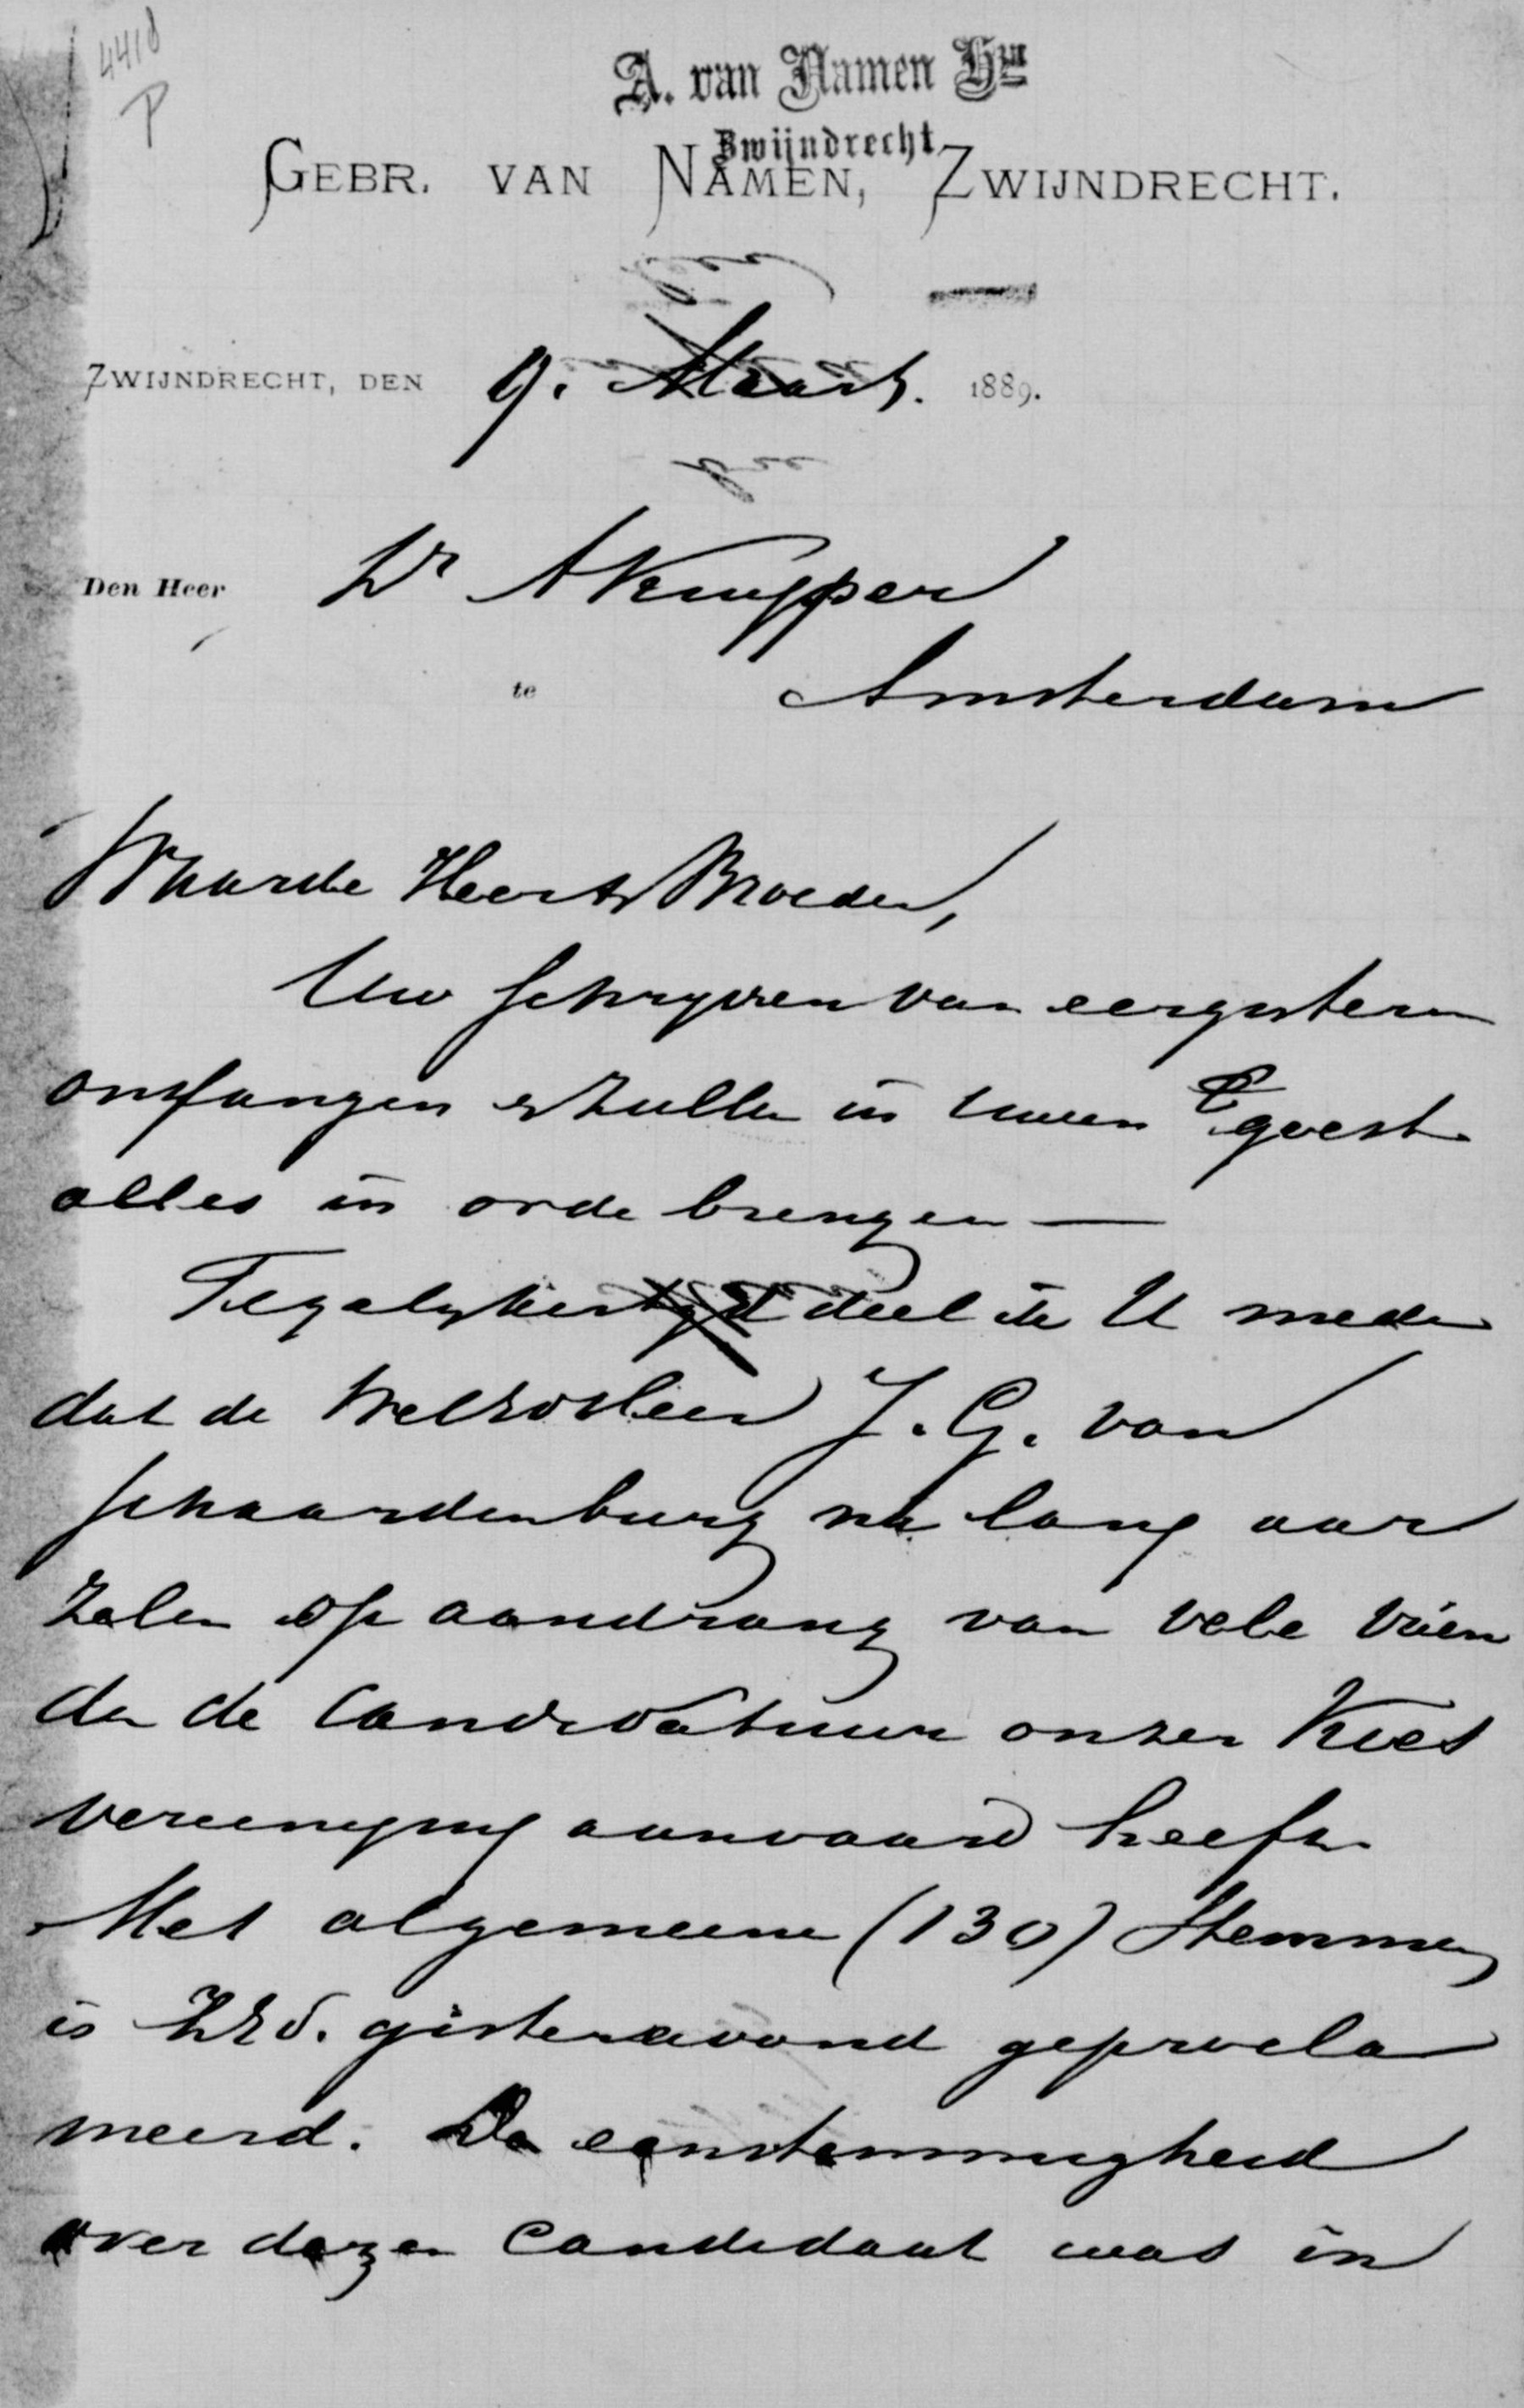 4418
P
A. van Namen Hzn
Zwijndrecht
GEBR. VAN NAMEN, ZWIJNDRECHT.
ZWIJNDRECHT, DEN 9. Maart. 1889.
Den Heer Dr A Kuyper
te Amsterdam
Waarde Heer & Broeder,
Uw schrijven van eergisteren
ontfangen & zullen in uwen geest
alles in orde brengen —
Tegelykertyd deel ik U mede
dat de WelEd Heer J. G. van
Schaardenburg na lang aar
zelen op aandrang van vele vrien
den de Candidatuur onzer Kies
vereeniging aanvaard heeft.
Met algemeene (130) Stemmen
is ZEd. gisteravond geprocla
meerd. De eenstemmigheid
over dezen Candidaat was in